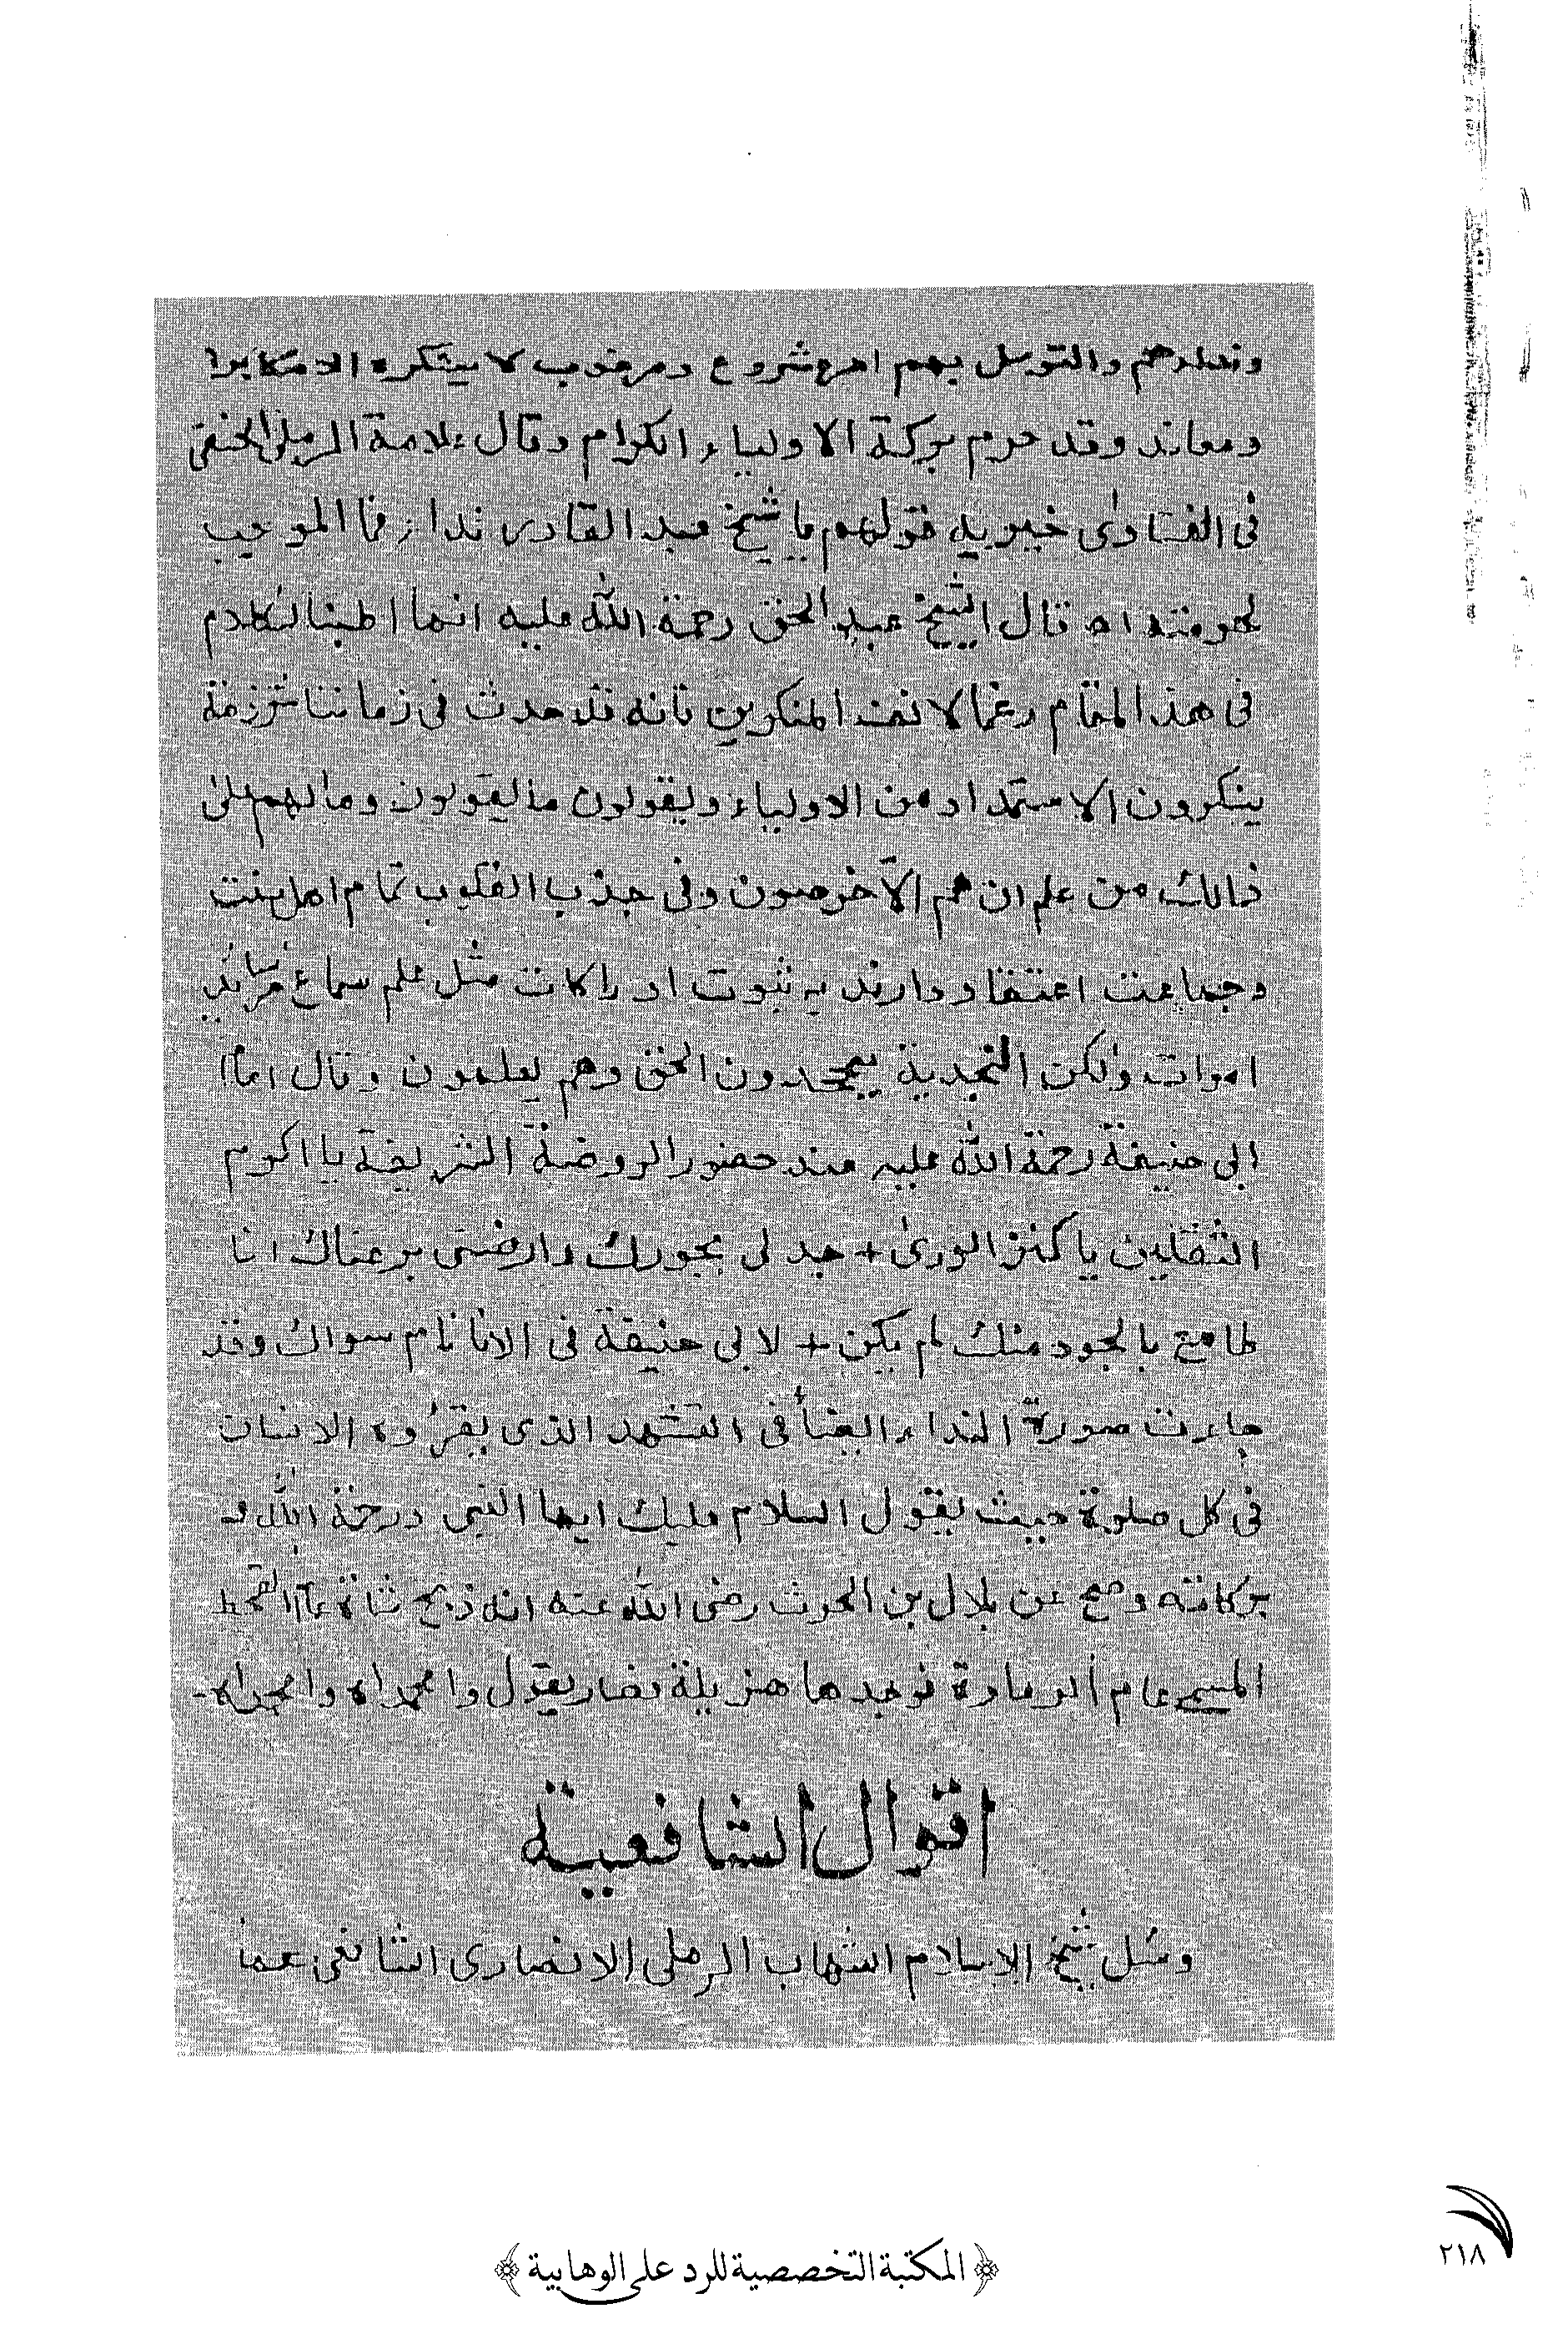 ونداءهم والتوسل بهم امر مشروع ومرغوب لا ينكره الا مكابرا
ومعاند وقد حرم بركة الاولياء الكرام وقال علامة الرملى الحنفى
فى الفتاوى خيريه قولهم يا شيخ عبد القادر نداء فما الموجب
لحرمته اه قال الشيخ عبد الحق رحمة الله عليه انما اطبنا الكلام
فى هذا المقام رغما لانف المنكرين فانه قد حدث فى زماننا شرزمة
ينكرون الاستمداد من الاولياء ويقولون ما يقولون وما لهم على
ذالك من علم ان هم الا يخرصون وفى جذب القلوب تمام اهل سنت
وجماعت اعتقاد دارند به ثبوت ادراكات مثل علم سماع مرسائر
اموات ولكن النجدية يجحدون الحق وهم يعلمون وقال اما
ابى حنيفة رحمة الله عليه عند حضور الروضة الشريفة يا اكرم
الثقلين يا كنز الورى + جد لى بجودك وارضنى برضاك انا
طامع بالجود منك لم يكن + لابى حنيفة فى الانام سواك وقد
جاءت صورة النداء ايضا فى التشهد الذى يقرؤه الانسان
فى كل صلوة حيث يقول السلام عليك ايها النبى ورحمة الله و
بركاته وصح عن بلال بن الحرث رضى الله عنه انه ذبح شاة عام القحط
المسمى عام الرمادة فوجدها هزيلة فصار يقول وا محمداه وا محمداه۔
اقوال الشافعية
وسئل شيخ الاسلام الشهاب الرملى الانصارى الشافعى عما
﴿ المكتبة التخصصية للرد على الوهابية ﴾
٢١٨